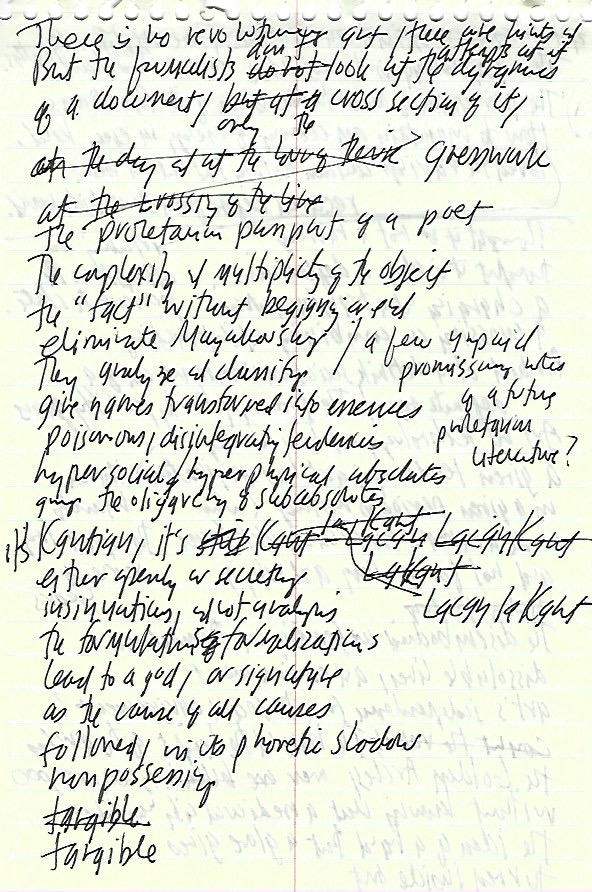 There is no revolutionary art / there are hints of attempts at it
But the formalists do not look at the dynamics
of a document / but at a cross section of it /
only the
at the day at at the
guesswork
at the crossing of the line
the proletarian pamphlet of a poet
The complexity & multiplicity of the object
the "fact" without beginning or end
eliminate Mayakovsky / a few unpaid
They analyze and classify promissory notes
give names transformed into enemies of a future
poisonous / disintegrating tendencies proletarian
literature?
hypersocial / hyperphysical absolutes
the oligarchy of subabsolutes
it's Kantian, it's Kant Lacan Lacan Kant
either openly or secretly
insinuations, not analysis Lacan la Kant
the formulations of formalizations
lead to a god / or signature
as the cause of all causes
followed / in its phonetic shadow
nonpossessing
tangible
tangible